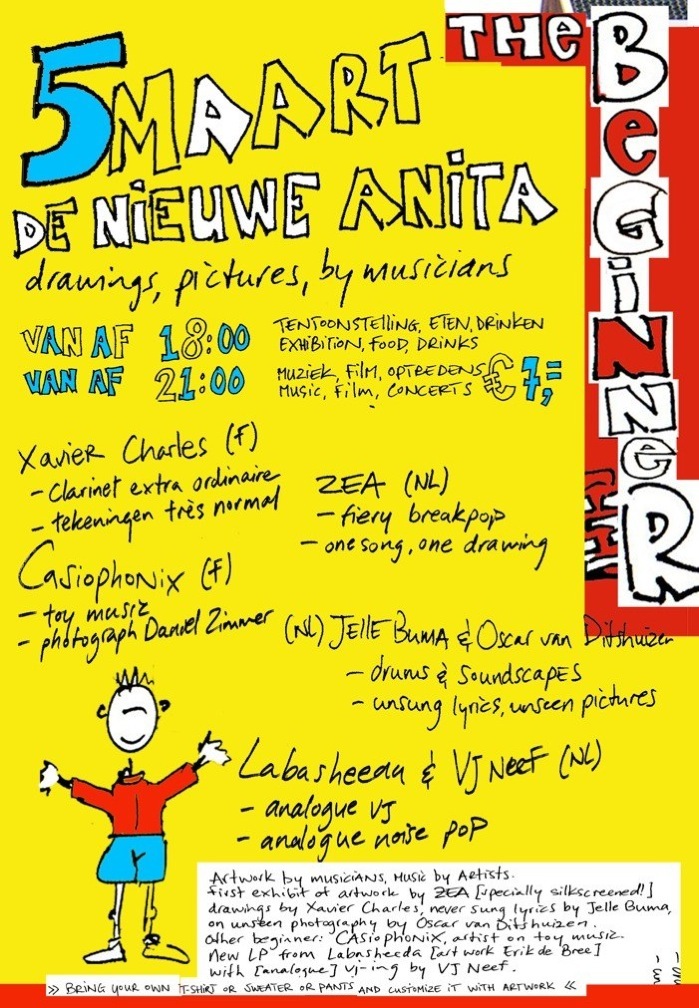 THE BEGINNER
5 MAART
DE NIEUWE ANITA
drawings, pictures, by musicians
VAN AF 18:00 TENTOONSTELLING, ETEN, DRINKEN
EXHIBITION, FOOD, DRINKS
VAN AF 21:00 MUZIEK, FILM, OPTREDENS
MUSIC, FILM, CONCERTS € 7,=
Xavier Charles (F)
- Clarinet extra ordinaire
- tekeningen très normal
ZEA (NL)
- fiery breakpop
- one song, one drawing
Casiophonix (F)
- toy music
- photograph Daniel Zimmer
(NL) JELLE BUMA & Oscar van Ditshuizen
- drums & soundscapes
- unsung lyrics, unseen pictures
Labasheeda & VJ Neef (NL)
- analogue VJ
- analogue noise pop
Artwork by musicians, Music by Artists.
first exhibit of artwork by ZEA [specially silkscreened!]
drawings by Xavier Charles, never sung lyrics by Jelle Buma,
on unseen photography by Oscar van Ditshuizen.
Other beginner: CASIOPHONIX, artist on toy music.
New LP from Labasheeda [art work Erik de Bree]
with [analogue] VJ-ing by VJ Neef.
» BRING YOUR OWN T-SHIRT OR SWEATER OR PANTS AND CUSTOMIZE IT WITH ARTWORK «